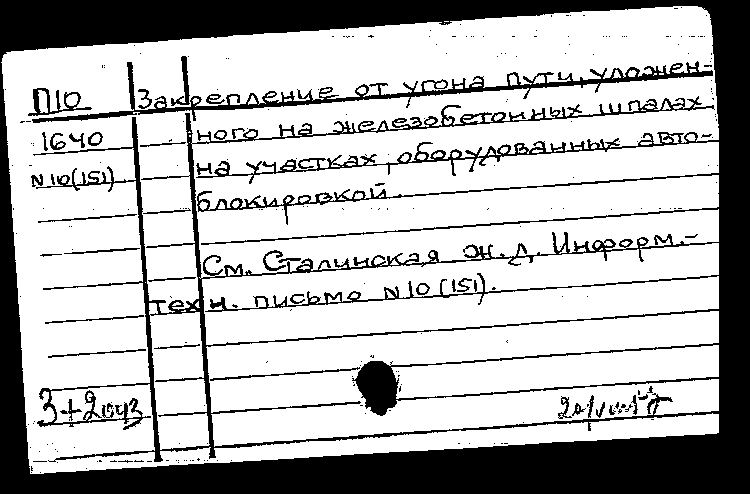 П10 Закрепление от угона пути, уложен-
1640 ного на железобетонных шпалах
N10(151) на участках, оборудованных авто-
блокировкой.
См. Сталинская ж.д. Информ.-
техн. письмо N10(151).
3+2